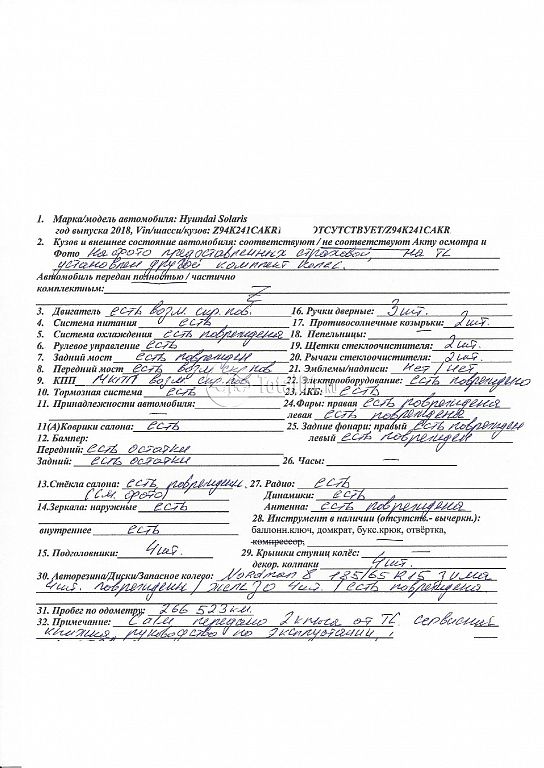 1. Марка/модель автомобиля: Hyundai Solaris
год выпуска 2018, Vin/шасси/кузов: Z94K241CAKR1 ОТСУТСТВУЕТ/Z94K241CAKR
2. Кузов и внешнее состояние автомобиля: соответствуют / не соответствуют Акту осмотра и
Фото На фото предоставленных страховой, на ТС
установлен другой комплект колес.
Автомобиль передан полностью / частично
комплектным: Z
3. Двигатель есть возм. скр. пов. 16. Ручки дверные: 3 шт.
4. Система питания есть 17. Противосолнечные козырьки: 2 шт.
5. Система охлаждения есть повреждена 18. Пепельницы: —
6. Рулевое управление есть 19. Щетки стеклоочистителя: 2 шт.
7. Задний мост есть поврежден 20. Рычаги стеклоочистителя: 2 шт.
8. Передний мост есть возм скр пов 21. Эмблемы/надписи: нет / нет.
9. КПП МКПП возм скр. пов. 22. Электрооборудование: есть повреждено
10. Тормозная система есть 23. АКБ: есть
11. Принадлежности автомобиля: 24.Фары: правая есть повреждена
— левая есть повреждена
11(А)Коврики салона: — 25. Задние фонари: правый есть поврежден
12. Бампер: левый есть поврежден
Передний: есть остатки
Задний: есть остатки 26. Часы: —
13.Стёкла салона: есть поврежден. 27. Радио: есть
(см. фото) Динамики: есть
14.Зеркала: наружные есть Антенна: есть повреждена
28. Инструмент в наличии (отсутств.- вычеркн.):
внутреннее есть баллонн.ключ, домкрат, букс.крюк, отвёртка,
компрессор, —
15. Подголовники: 4 шт. 29. Крышки ступиц колёс: —
декор. колпаки 4 шт.
30. Авторезина/Диски/Запасное колесо: Nordman 8 185/65 R15 Зима
4 шт. повреждены / желез 4 шт. / есть повреждена
31. Пробег по одометру: 266 523 км.
32. Примечание: передано 2 ключа от ТС сервисная
книжка, руководство по эксплуатации